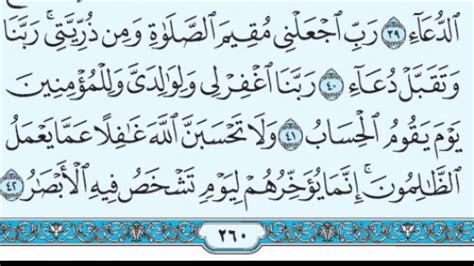 الدُّعَآءِ ٣٩ رَبِّ ٱجۡعَلۡنِي مُقِيمَ ٱلصَّلَوٰةِ وَمِن ذُرِّيَّتِيۚ رَبَّنَا
وَتَقَبَّلۡ دُعَآءِ ٤٠ رَبَّنَا ٱغۡفِرۡ لِي وَلِوَٰلِدَيَّ وَلِلۡمُؤۡمِنِينَ
يَوۡمَ يَقُومُ ٱلۡحِسَابُ ٤١ وَلَا تَحۡسَبَنَّ ٱللَّهَ غَٰفِلًا عَمَّا يَعۡمَلُ
ٱلظَّٰلِمُونَۚ إِنَّمَا يُؤَخِّرُهُمۡ لِيَوۡمٖ تَشۡخَصُ فِيهِ ٱلۡأَبۡصَٰرُ ٤٢
٢٦٠